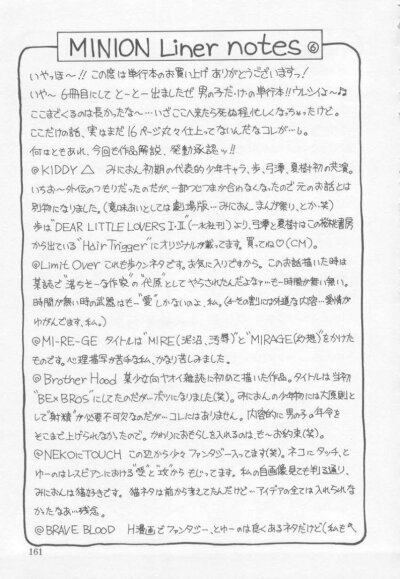 MINION Liner notes ⑥
いやっほ〜!! この度は単行本のお買い上げ ありがとうございますっ!
いや〜 6冊目にして とーとー出ましたぜ 男の子だけの単行本!! ウレシイよ〜
ここまでくるのは長かったな〜…いざここへ来たら死ぬ程忙しくなっちゃったけど。
ここだけの話、実はまだ16ページ丸々仕上ってないんだなコレが…。
何はともあれ、今回も作品解説、発動承認ッ!!
@KIDDY△ みにおん初期の代表的少年キャラ、歩、弓澤、夏樹初の共演。
いちお〜外伝のつもりだったのだが、一部つじつまか合わなくなったので元のお話とは
別物になりました。(意味あいとしては劇場版…みにおん まんが祭り、とか・笑)
歩は"DEAR LITTLE LOVERS I・II"(一水社刊)より、弓澤と夏樹はこの桜桃書房
から出ている"Hair Trigger"にオリジナルが載ってます。買ってね♡(CM)。
@Limit Over これも歩クンネタです。お気に入りですから。このお話描いた時は
某誌で"落ちそーな作家"の"代原"としてやらされたんだよなァ…も〜時間が無い無い。
時間が無い時の武器はも〜"愛"しかないのよ、私。(その割には外道な内容…愛情が
ゆがんでます、私。)
@MI-RE-GE タイトルは"MIRE(泥沼、汚辱)"と"MIRAGE(幻想)"をかけた
ものです。心理描写が苦手な私、かなり苦しみました。
@Brother Hood 某少女向ヤオイ雑誌に初めて描いた作品。タイトルは当初
"BE×BROS"にしてたのだが…ボツになりました(笑)。みにおんの少年物には大原則と
して"射精"が必要不可欠なのだが…コレにはありません。内容的に男の子の年令を
そこまで上げられなかったので。かわりにおもらしを入れるのは、も〜お約束(笑)。
@NEKOにTOUCH この辺から少々ファンタジー入ってます(笑)。ネコにタッチ、と
ゆーのはレスビアンにおける"愛"と"攻"からもじってます。私の自画像見ても判る通り、
みにおんは猫好きです。猫ネタは前から考えてたんだけど…アイデアの全ては入れられな
かったなあ…残念。
@BRAVE BLOOD H漫画でファンタジー、とゆーのは良くあるネタだけど(私もへ
161